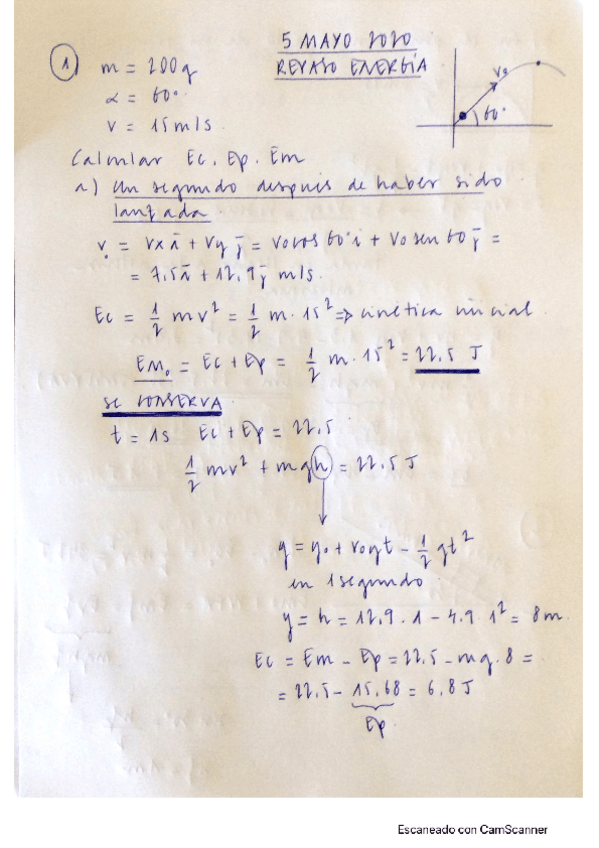 5 MAYO 2020
REPASO ENERGÍA
1 m = 200g
α = 60°
v = 15 m/s.
v₀
60°
Calcular Ec, Ep, Em
a) Un segundo después de haber sido
lanzada.
v₀ = vx i + vy j = v₀ cos 60° i + v₀ sen 60 j =
= 7,5 i + 12,9 j m/s.
Ec = 1/2 mv² = 1/2 m · 15² => cinética inicial
Em₀ = Ec + Ep = 1/2 m · 15² = 22,5 J
SE CONSERVA
t = 1s Ec + Ep = 22,5
1/2 mv² + mgh = 22,5 J
y = y₀ + v₀yt - 1/2 gt²
en 1 segundo
y = h = 12,9 · 1 - 4,9 · 1² = 8 m.
Ec = Em - Ep = 22,5 - mg · 8 =
= 22,5 - 15,68 = 6,8 J
Ep.
Escaneado con CamScanner